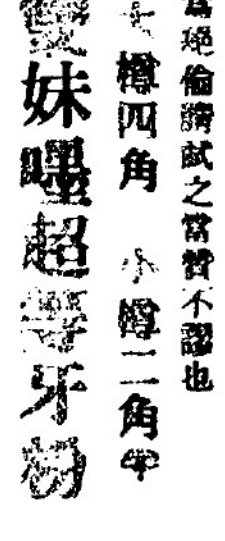 絕倫請試之當贊不謬也
樽四角　小樽二角半
妹嚜超等牙粉